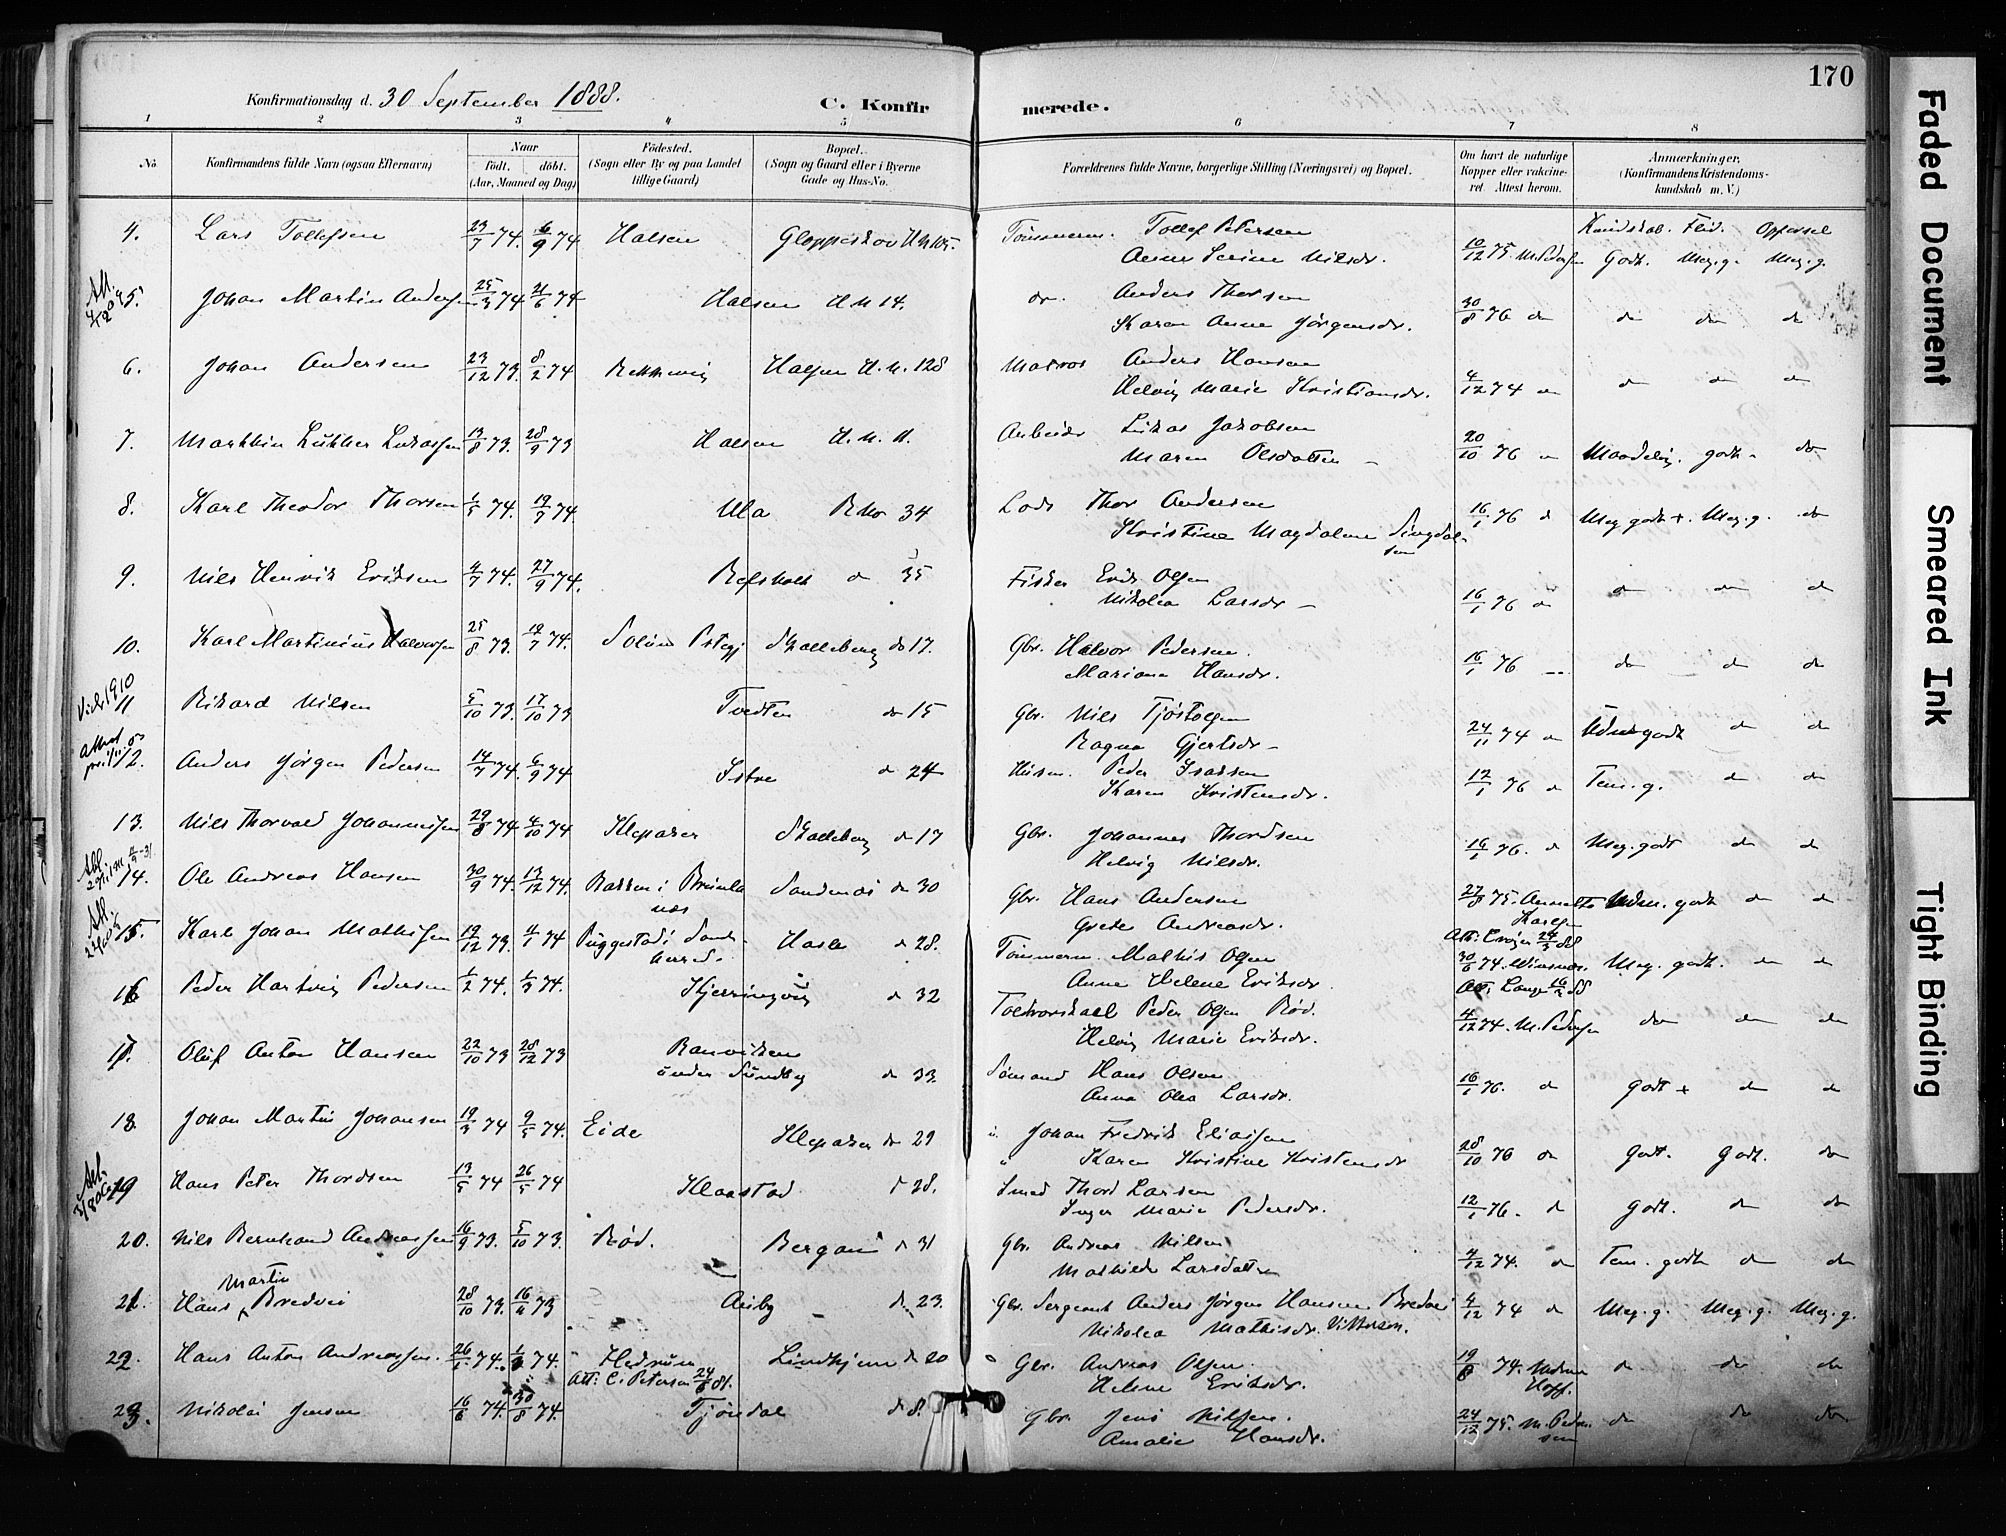 170
Konfirmationsdag d. 30 September 1888. C. Konfirmerede.
1 2 3 4 5 6 7 8
No. Konfirmandens fulde Navn (ogsaa Efternavn) Naar født. døbt. (Aar, Maaned og Dag) Fødested. (Sogn eller By og paa Landet tillige Gaard) Bopæl. (Sogn og Gaard eller i Byerne Gade og Hus-No. Forældrenes fulde Navne, borgerlige Stilling (Næringsvei) og Bopæl. Om havt de naturlige Kopper eller vaccineret. Attest herom. Anmærkninger. (Konfirmandens Kristendomskundskab m. V.)
Kundskab. Flid. Opførsel
4. Lars Tollefsen 23/7 74. 6/9 74 Halsen Gloppeskov H N 105. Tømmerm. Tollef Petersen
Anne Serine Nilsdr. 10/12 75. M. Pedersen Godt. Meg. g. Meg. g.
5. Johan Martin Andersen 25/3 74 21/6 74 Halsen H. N 14. do. Anders Thorsen
Karen Anne Jørgensdr. 30/8 76 do do do do
6. Johan Andersen 23/12 73. 8/2 74 Rekkevig Halsen H. N. 128 Matros Anders Hansen
Helvig Marie Kristiansdr. 4/12 74 do do do do
7. Marthin Luther Lukassen 13/8 73. 28/9 73 Halsen H. N. 11. Arbeider Lukas Jakobsen
Maren Olsdatter 20/10 76 do Maadelig. godt do
8. Karl Theodor Thorsen 1/5 74. 19/7 74. Ula R No 34 Lods Thor Andersen
Kristine Magdalene Singdalsen 16/1 76 d Meg godt +. Meg. g. do
9. Nils Henrik Eriksen 4/7 74. 27/9 74. Refsholt do 35 Fisker Erik Olsen
Nikolea Larsdr 16/1 76 do do do do
10. Karl Martinius Halvorsen 25/8 73. 19/7 74. Solum Pstgj Skalleberg do 17. Gbr. Halvor Pedersen.
Mariane Hansdr. 16/1 76 do do do
Vielse 1910
11 Rikard Nilsen 5/10 73. 17/10 73 Tvedten do 15 Gbr. Nils Tjøstolsen
Ragna Gjertsdr 24/11 74 do Udm godt do do
12. Anders Jørgen Pedersen 14/7 74. 6/9 74 Istre do 24 Husm. Peder Isaksen
Karen Kristensdr. 12/1 76 do Tem. g. do do
13. Nils Thorvald Johannessen 29/8 74 4/10 74 Klepaker Skalleberg do 17 Gbr. Johannes Thordsen
Helvig Nilsdr. 16/1 76. do Meg. godt do do
14. Ole Andreas Hansen 30/9 74. 13/12 74. Bakken i Brunlanæs Sandenæs do 30 Gbr. Hans Andersen
Grete Andreasdr. 27/8 75. Udm. godt do do
15. Karl Johan Mathisen 19/12 73. 4/1 74 Puggestad i Sandherred. Hasle do 28. Tømmerm. Mathis Olsen
Anne Helene Eriksdr. 30/6 74. Meg. godt. do do
16 Peder Hartvig Pedersen 1/2 74. 1/3 74. Kjerringvig do 32 Toldrorskarl Peder Olsen Rød.
Helvig Marie Eriksdr. 4/12 74. M. Pedersen do do do
17. Oluf Anton Hansen 22/10 73 28/12 73 Ranviken under Sundby do 33. Sømand Hans Olsen
Anna Olea Larsdr. 16/1 76. do Godt + do do
18. Johan Martin Johansen 19/3 74 9/5 74. Eide Klepaker do 29 Johan Fredrik Eliassen
Karen Kristine Kristensdr 28/10 76 do Godt. Godt. do
19 Hans Peter Thordsen 13/5 74 26/5 74 Klaastad do 28. Smed Thord Larsen
Inger Marie Pedersdr. 12/1 76. do Godt. do do
20. Nils Bernhard Andreassen 16/9 73. 5/10 73. Rød. Bergan do 31 Gbr. Andreas Nilsen
Mathilde Larsdatter 4/12 74. do Tem. godt do do
21. Hans Martin Bredvei 28/10 73. 16/11 73 Auby do. 23. Gbr. Sergeant Anders Jørgen Hansen Bredvei
Nikolea Mathisdr. 4/12 74 do Meg. g. Meg. g. Meg. g.
22. Hans Anton Andreassen. 26/1 74. 74. Hedrum Lindhjem do 20 Gbr. Andreas Olsen.
Att: C. Petersen 24/8 81. Helene Eriksdr. 19/8 74. Hoff. do do do
23. Nikolai Jensen 16/6 74. 30/8 74. Tjøndal do 8. Gbr. Jens Nilsen.
Amalie Hansdr. 24/12 75. M. Pedersen do do do
Faded Document
Smeared Ink
Tight Binding